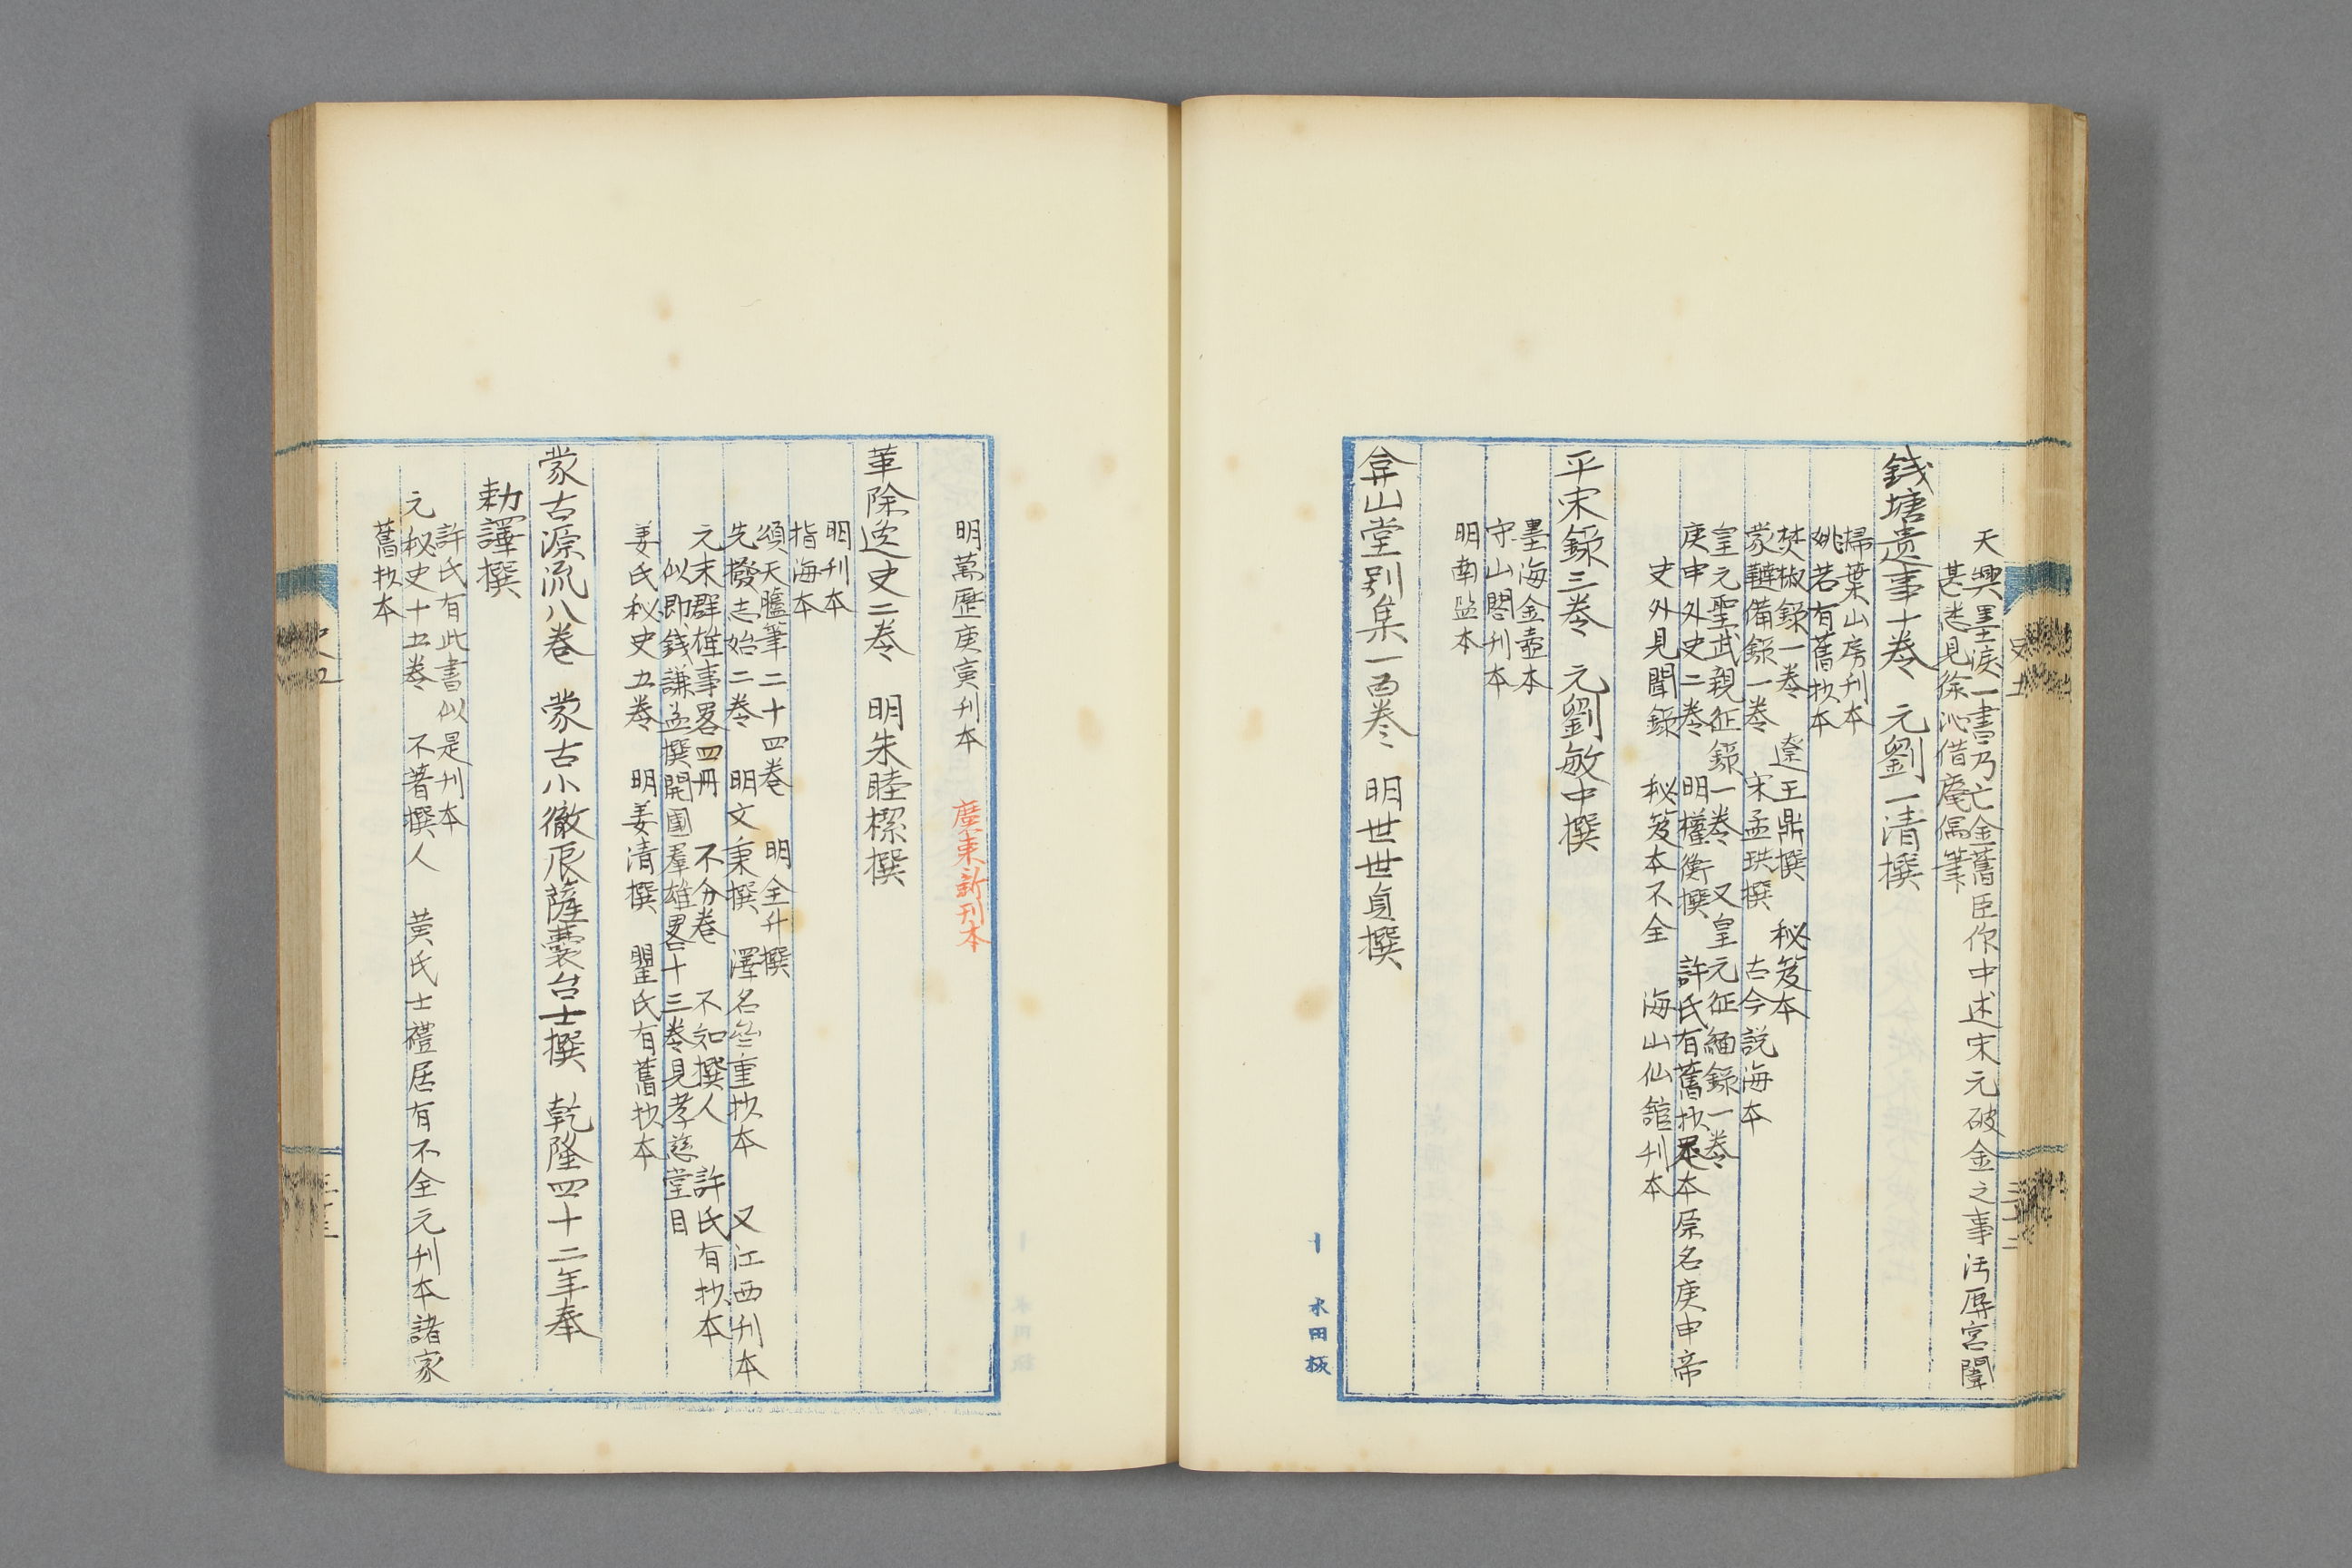 天興墨淚一書乃亡金舊臣你中述宋元破金之事汚辱宮闈
甚悉見徐沁借庵偶筆
錢塘遗事十卷　元劉一清撰
掃葉山房刊本
姚若有舊抄本
焚椒錄一卷　遼王鼎撰　秘笈本
蒙韃備錄一卷　宋孟珙撰　古今説海本
皇元聖武親征錄一卷　又皇元征緬錄一卷
庚申外史二卷　明權衡撰　許氏有舊抄足本原名庚申帝
史外見聞錄　秘笈本不全　海山仙館刊本
平宋錄三卷　元劉敏中撰
墨海金壺本
守山閣刊本
明南监本
弇山堂别集一百卷　明世世貞撰
木田板
明萬歷庚寅刊本　廣東新刊本
革除逸史二卷　明朱睦㮮撰
明刊本
指海本
頌天臚筆二十四卷　明全升撰
先撥志始二卷　明文秉撰　澤名叅重抄本　又江西刊本
元末群雄事畧四冊　不分卷　不知撰人　許氏有抄本
似即錢謙孟撰開國羣雄畧十三卷見孝慈堂目
姜氏秘史五卷　明姜清撰　翟氏有舊抄本
蒙古源流八卷　蒙古小徹辰薩囊台士撰　乾隆四十二年奉
勅譯撰
許氏有此書似是刊本
元秘史十五卷　不著撰人　黄氏士禮居有不全元刊本諸家
舊抄本
史五